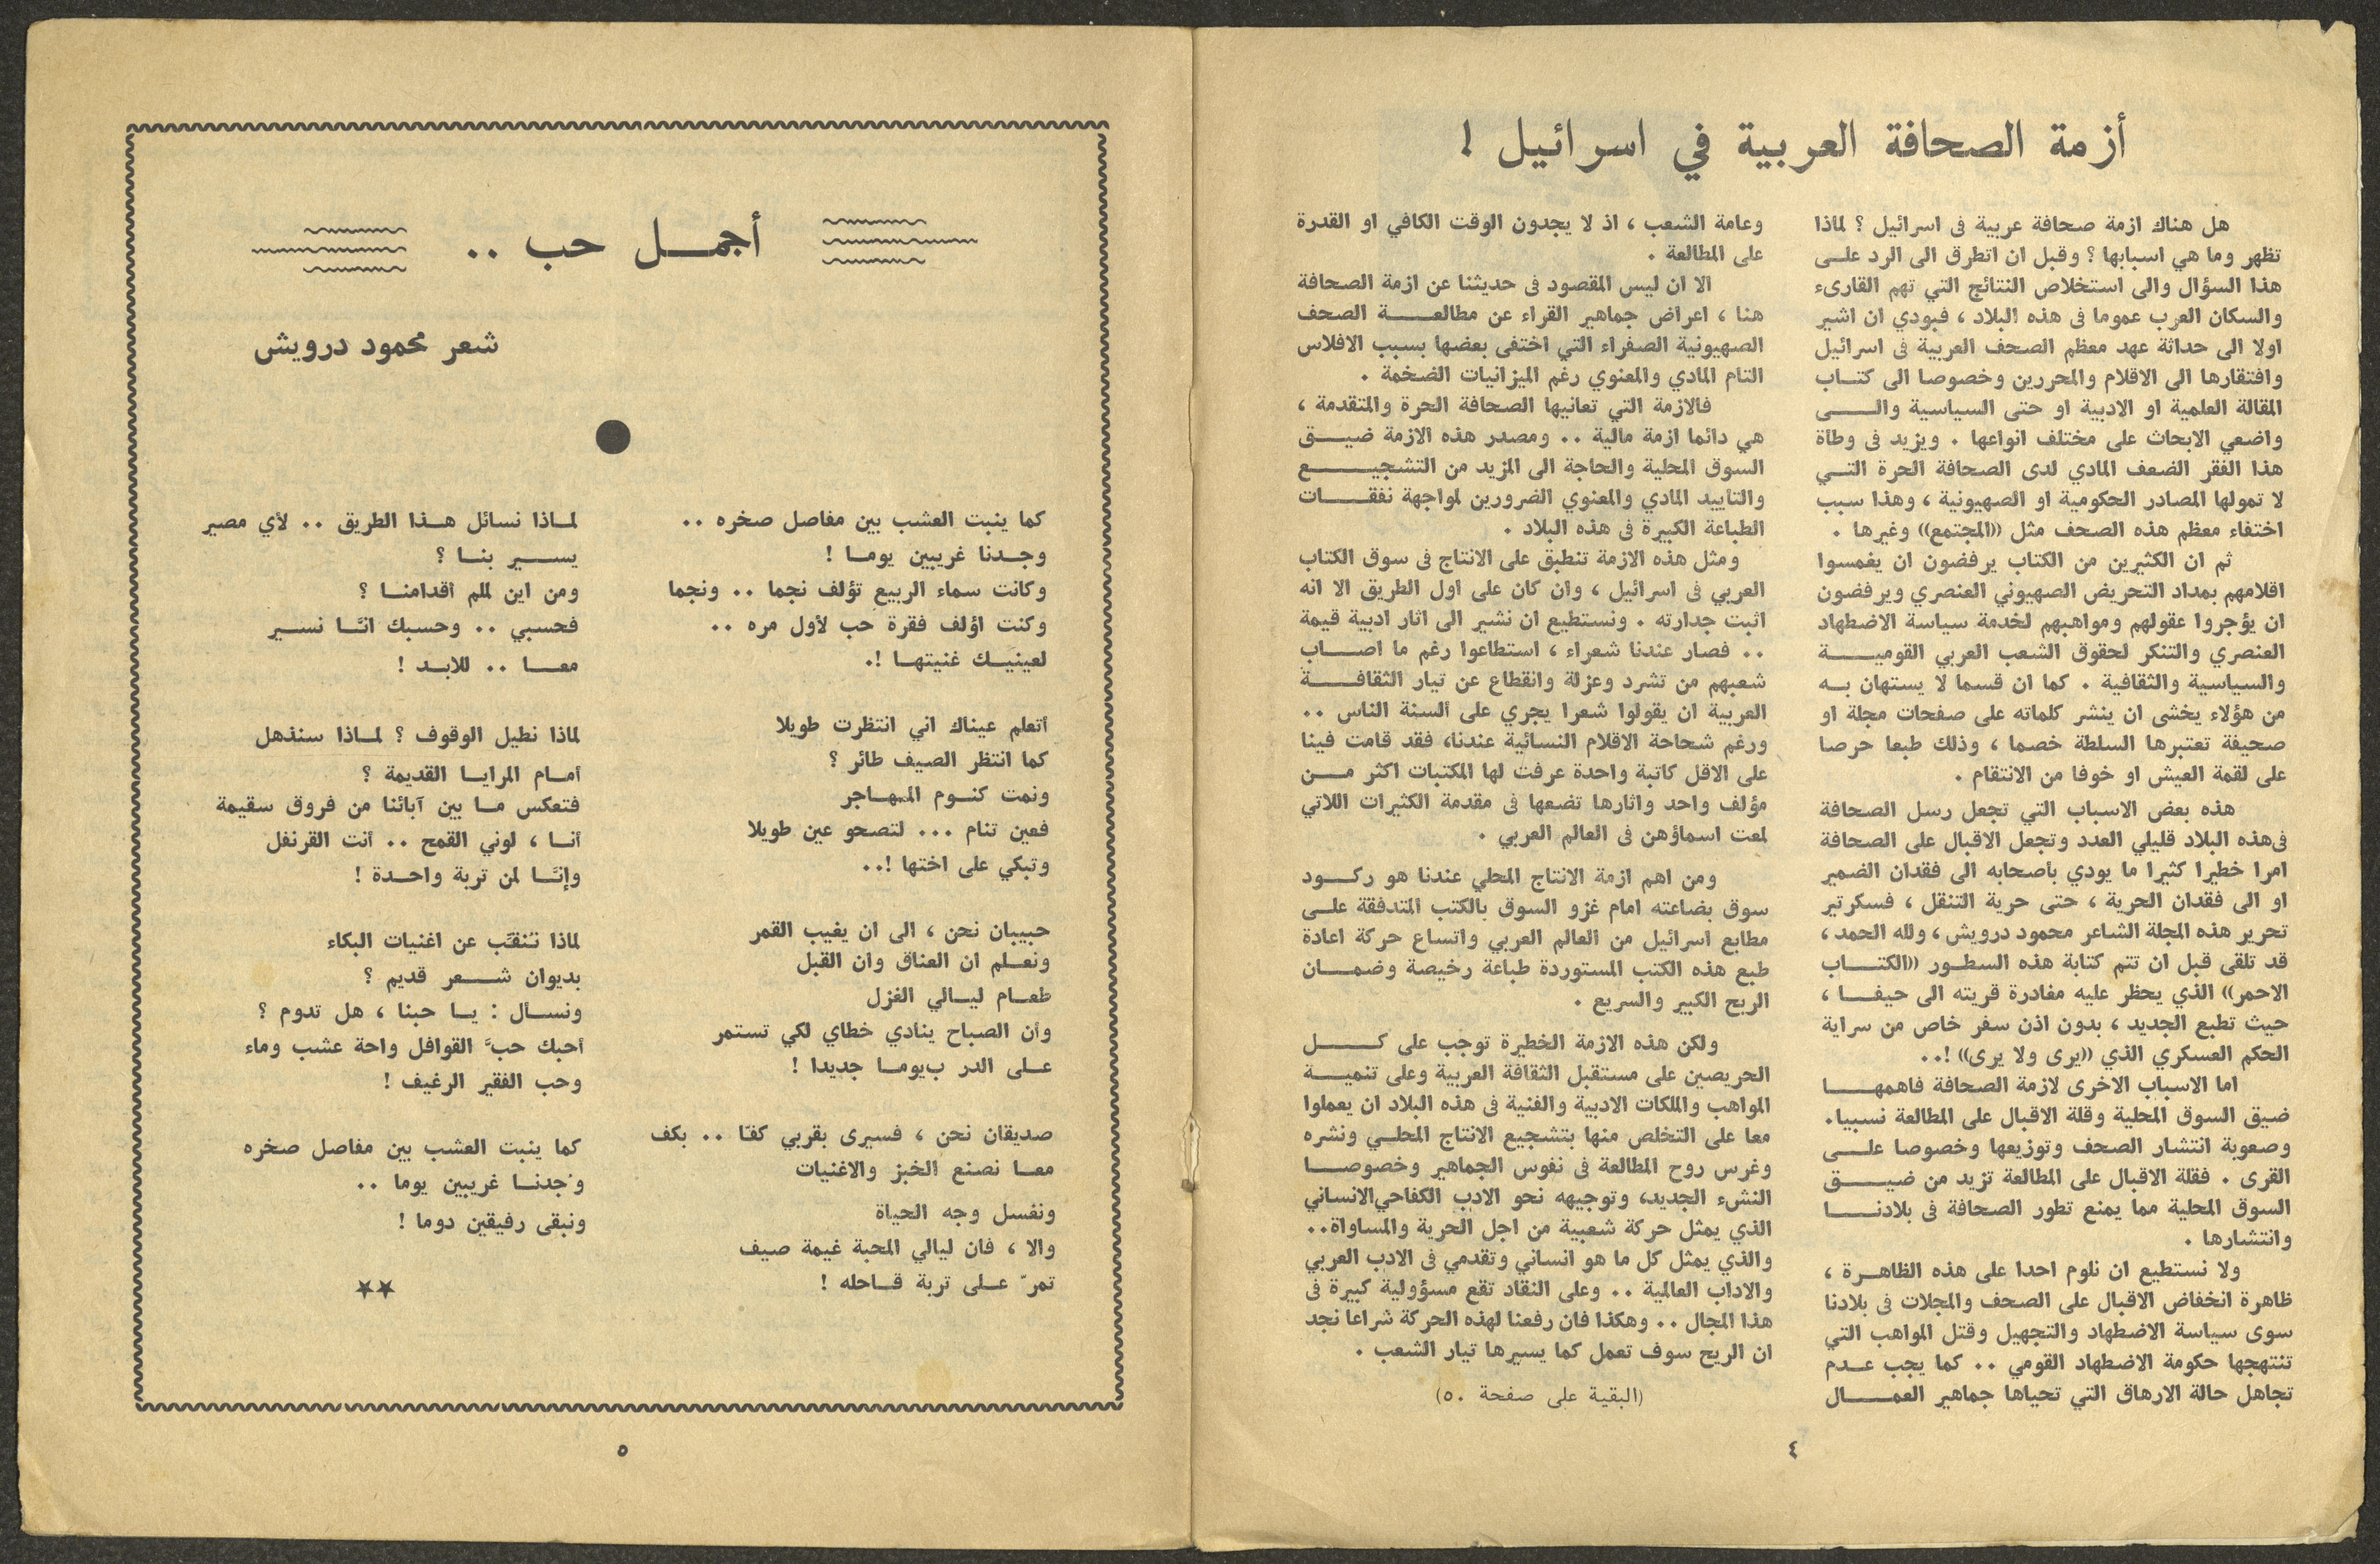 أزمة الصحافة العربية في اسرائيل !
هل هناك ازمة صحافة عربية فى اسرائيل ؟ لماذا
تظهر وما هي اسبابها ؟ وقبل ان اتطرق الى الرد علـى
هذا السؤال والى استخلاص النتائج التي تهم القارىء
والسكان العرب عموما فى هذه البلاد ، فبودي ان اشير
اولا الى حداثة عهد معظم الصحف العربية فى اسرائيل
وافتقارها الى الاقلام والمحررين وخصوصا الى كتـاب
المقالة العلمية او الادبية او حتى السياسية والـــى
واضعي الابحاث على مختلف انواعها . ويزيد فى وطأة
هذا الفقر الضعف المادي لدى الصحافة الحرة التـي
لا تمولها المصادر الحكومية او الصهيونية ، وهذا سبب
اختفاء معظم هذه الصحف مثل ((المجتمع)) وغيرها .
ثم ان الكثيرين من الكتاب يرفضون ان يغمسوا
اقلامهم بمداد التحريض الصهيوني العنصري ويرفضون
ان يؤجروا عقولهم ومواهبهم لخدمة سياسة الاضطهاد
العنصري والتنكر لحقوق الشعب العربي القوميـــة
والسياسية والثقافية . كما ان قسما لا يستهان بـه
من هؤلاء يخشى ان ينشر كلماته على صفحات مجلة او
صحيفة تعتبرها السلطة خصما ، وذلك طبعا حرصا
على لقمة العيش او خوفا من الانتقام .
هذه بعض الاسباب التي تجعل رسل الصحافة
فى هذه البلاد قليلي العدد وتجعل الاقبال على الصحافة
امرا خطيرا كثيرا ما يودي بأصحابه الى فقدان الضمير
او الى فقدان الحرية ، حتى حرية التنقل ، فسكرتير
تحرير هذه المجلة الشاعر محمود درويش ، ولله الحمد ،
قد تلقى قبل ان تتم كتابة هذه السطـور ((الكتـــاب
الاحمر)) الذي يحظر عليه مغادرة قريته الى حيفـا ،
حيث تطبع الجديد ، بدون اذن سفر خاص من سراية
الحكم العسكري الذي ((يرى ولا يرى)) !..
اما الاسباب الاخرى لازمة الصحافة فاهمهـــا
ضيق السوق المحلية وقلة الاقبال على المطالعة نسبيا.
وصعوبة انتشار الصحف وتوزيعها وخصوصا علـــى
القرى . فقلة الاقبال على المطالعة تزيد من ضيـــق
السوق المحلية مما يمنع تطور الصحافة فى بلادنـــا
وانتشارها .
ولا نستطيع ان نلوم احدا على هذه الظاهـرة ،
ظاهرة انخفاض الاقبال على الصحف والمجلات فى بلادنا
سوى سياسة الاضطهاد والتجهيل وقتل المواهب التي
تنتهجها حكومة الاضطهاد القومي .. كما يجب عـدم
تجاهل حالة الارهاق التي تحياها جماهير العمـــال
وعامة الشعب ، اذ لا يجدون الوقت الكافي او القدرة
على المطالعة .
الا ان ليس المقصود فى حديثنا عن ازمة الصحافة
هنا ، اعراض جماهير القراء عن مطالعـــة الصحف
الصهيونية الصفراء التي اختفى بعضها بسبب الافلاس
التام المادي والمعنوي رغم الميزانيات الضخمة .
فالازمة التي تعانيها الصحافة الحرة والمتقدمة ،
هي دائما ازمة مالية .. ومصدر هذه الازمة ضيــق
السوق المحلية والحاجة الى المزيد من التشجيـــــع
والتاييد المادي والمعنوي الضرورين لمواجهة نفقـــات
الطباعة الكبيرة فى هذه البلاد .
ومثل هذه الازمة تنطبق على الانتاج فى سوق الكتاب
العربي فى اسرائيل ، وان كان على اول الطريق الا انه
اثبت جدارته . ونستطيع ان نشير الى اثار ادبية قيمة
.. فصار عندنا شعراء ، استطاعوا رغم ما اصـــاب
شعبهم من تشرد وعزلة وانقطاع عن تيار الثقافـــة
العربية ان يقولوا شعرا يجري على ألسنة الناس ..
ورغم شحاحة الاقلام النسائية عندنا، فقد قامت فينا
على الاقل كاتبة واحدة عرفت لها المكتبات اكثر مــن
مؤلف واحد واثارها تضعها فى مقدمة الكثيرات اللاتي
لمعت اسماؤهن فى العالم العربي .
ومن اهم ازمة الانتاج المحلي عندنا هو ركـــود
سوق بضاعته امام غزو السوق بالكتب المتدفقة علـى
مطابع اسرائيل من العالم العربي واتساع حركة اعادة
طبع هذه الكتب المستوردة طباعة رخيصة وضمـــان
الربح الكبير والسريع .
ولكن هذه الازمة الخطيرة توجب على كـــــل
الحريصين على مستقبل الثقافة العربية وعلى تنميـــة
المواهب والملكات الادبية والفنية فى هذه البلاد ان يعملوا
معا على التخلص منها بتشجيع الانتاج المحلـي ونشره
وغرس روح المطالعة فى نفوس الجماهير وخصوصـــا
النشء الجديد، وتوجيهه نحو الادب الكفاحي الانساني
الذي يمثل حركة شعبية من اجل الحرية والمساواة..
والذي يمثل كل ما هو انساني وتقدمي فى الادب العربي
والاداب العالمية .. وعلى النقاد تقع مسؤولية كبيرة فى
هذا المجال .. وهكذا فان رفعنا لهذه الحركة شراعا نجد
ان الريح سوف تعمل كما يسيرها تيار الشعب .
(البقية على صفحة ٥٠)
٤
أجمـــل حب ..
شعر محمود درويش
كما ينبت العشب بين مفاصل صخره ..
وجـدنا غريبين يومـا !
وكانت سماء الربيع تؤلف نجما .. ونجما
وكنت اؤلف فقرة حب لأول مره ..
لعينيـك غنيتهـا !.
أتعلم عيناك اني انتظرت طويلا
كما انتظر الصيف طائر ؟
ونمت كنـوم المهـاجر
فعين تنام ... لتصحو عين طويلا
وتبكي على اختها !..
حبيبان نحن ، الى ان يغيب القمر
ونعـلم ان العناق وان القبل
طعـام ليـالي الغزل
وان الصباح ينادي خطاي لكي تستمر
عـلى الدر ب يومـا جديدا !
صديقان نحن ، فسيرى بقربي كفّا .. بكف
معـا نصنع الخبز والاغنيات
ونغسل وجه الحياة
والا ، فان ليالي المحبة غيمة صيف
تمرّ عـلى تربة قـاحله !
لمـاذا نسائل هـذا الطريق .. لأي مصير
يســـير بنـا ؟
ومن اين لملم أقدامنـا ؟
فحسبي .. وحسبك انـّا نسـير
معـا .. للابـد !
لماذا نطيل الوقوف ؟ لمـاذا سنذهل
أمـام المرايـا القديمة ؟
فتعكس مـا بين آبائنا من فروق سقيمة
أنـا ، لوني القمح .. أنت القرنفل
وإنّـا لمن تربة واحـدة !
لماذا تنقّب عن اغنيات البكاء
بديوان شـــعر قديم ؟
ونسـأل : يـا حبنا ، هل تدوم ؟
أحبك حبَّ القوافل واحة عشب وماء
وحب الفقير الرغيف !
كما ينبت العشب بين مفاصل صخره
وجدنـا غريبين يوما ..
ونبقى رفيقين دوما !
٥